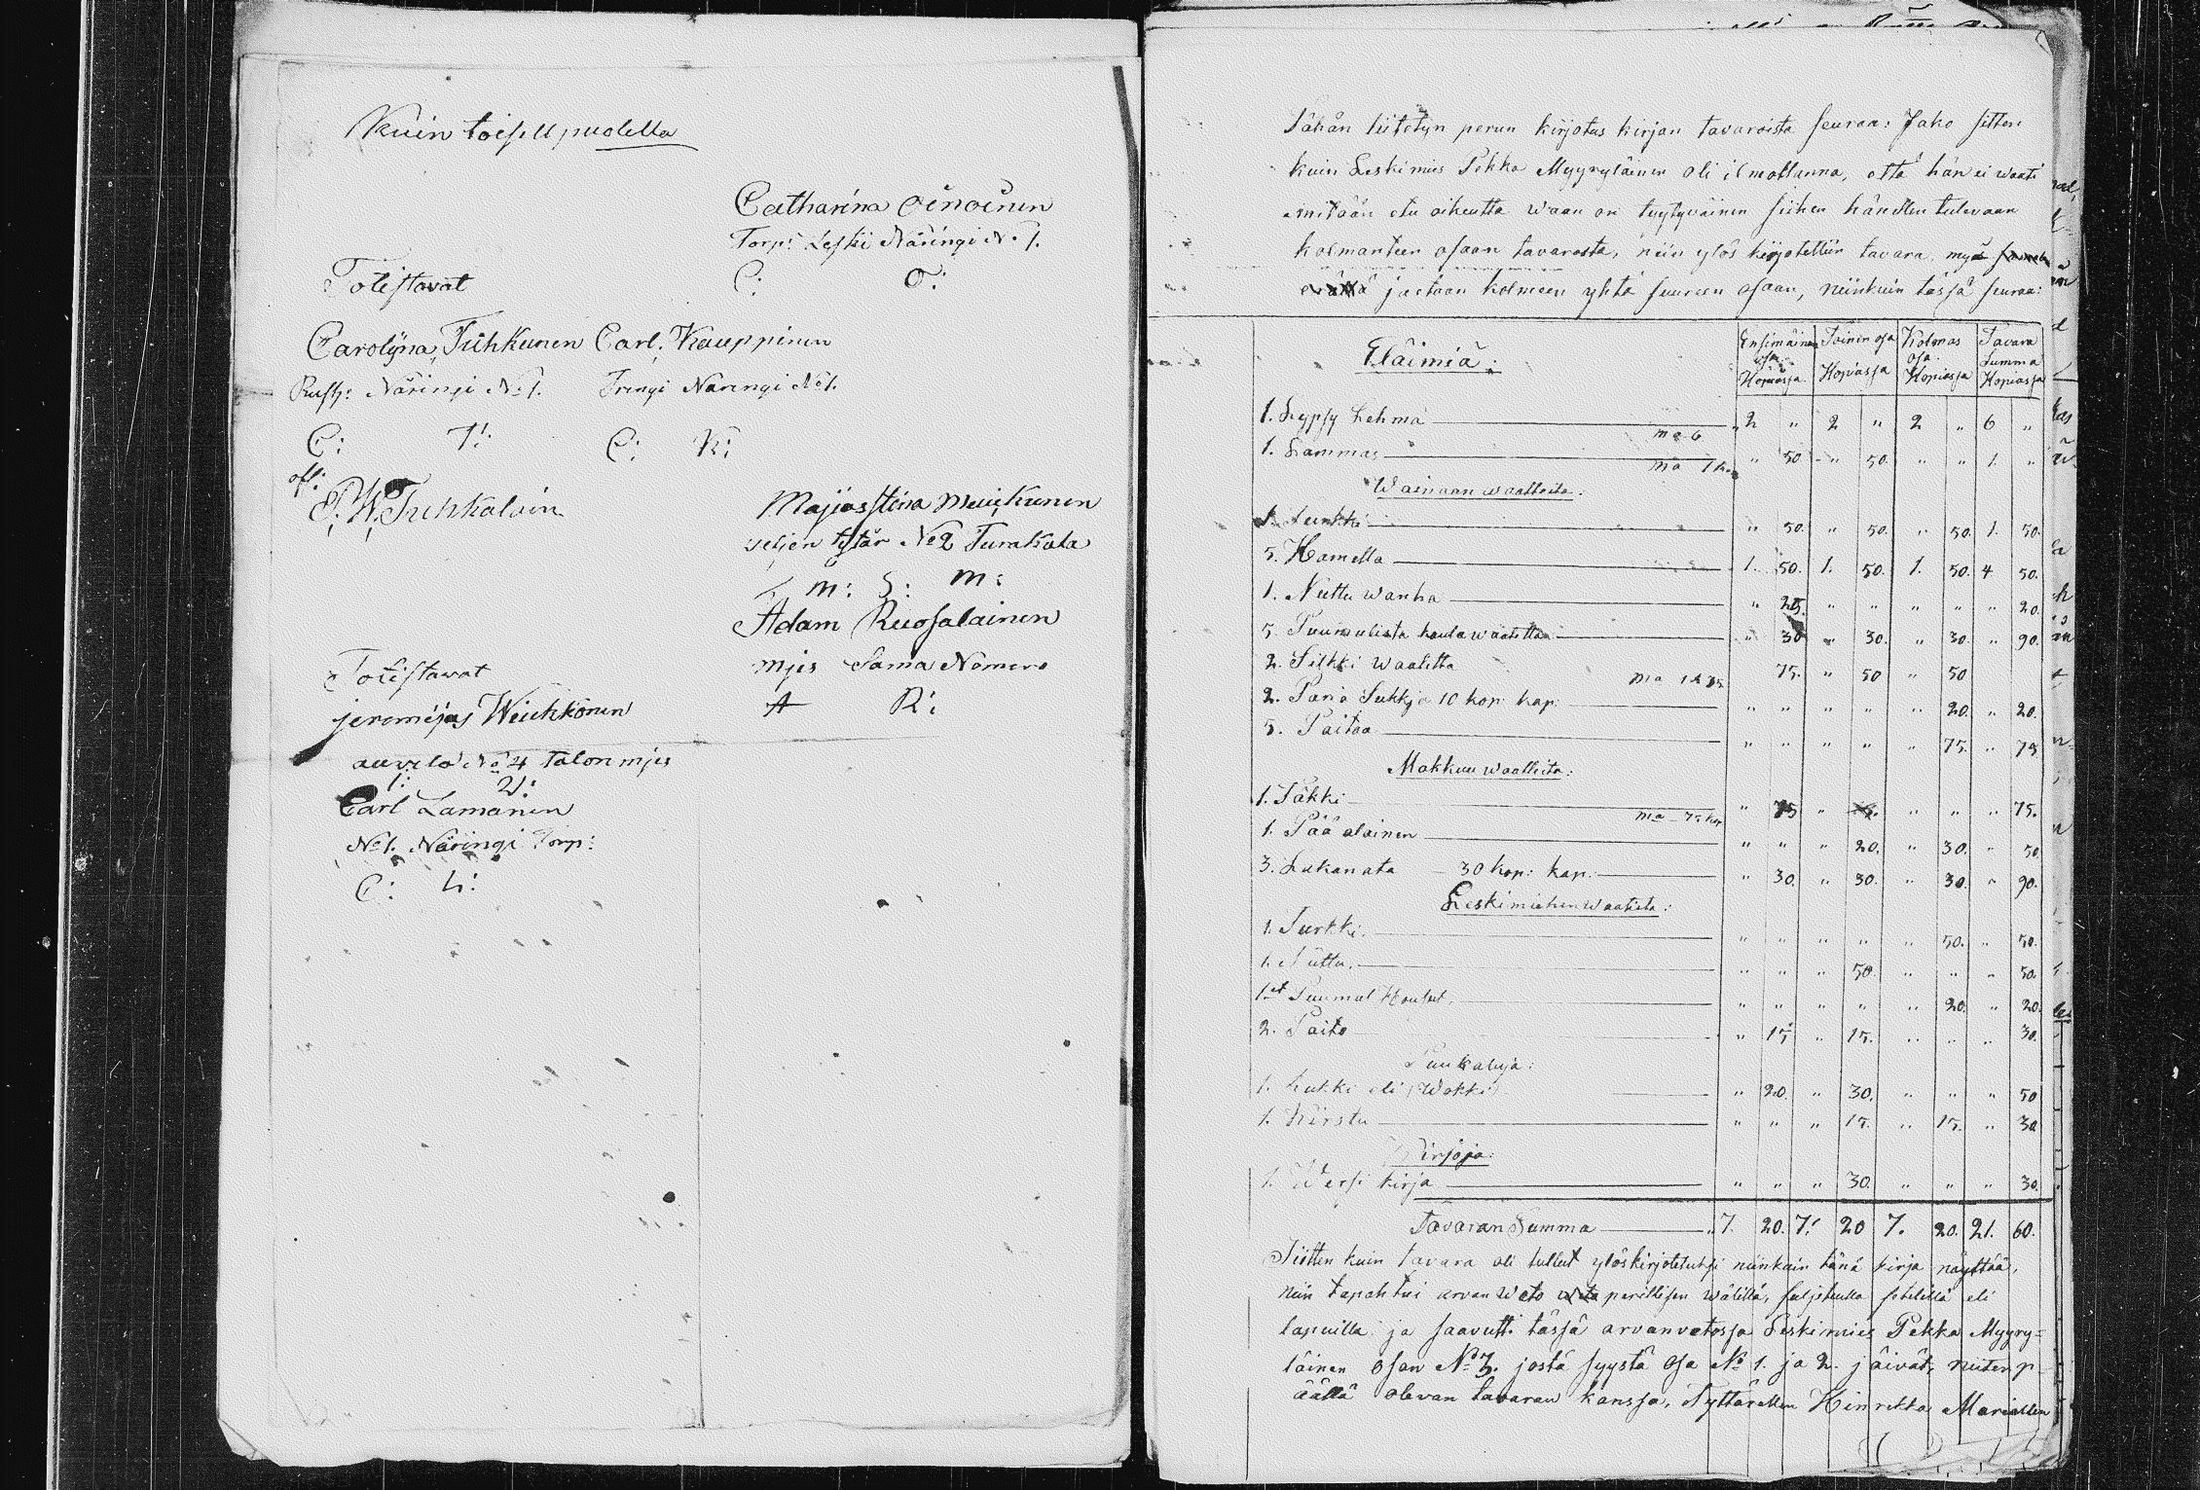 Kuin toisell puolella
Catharina Oinoinen
Torp: Leski Näringi No 1.
C: O:
Totistavat
Carolijna Tuhkunen Carl Kauppinen
Rusth: Näringi No 1. Näringi No 1.
C: T: C: K:
P. W. Tuhkalain
Majiasstina Muikunen
No 2 Turakala
M: S: M:
Adam Ruosalainen
mjes Sama Nomero
A R:
Totistavat
jeremijas Weichkönen
No 4 talon mjes
Carl Lamanen
No 1. Näringi Torp:
C: L:
Tähän liitetyn perun kirjotus kirjan tavaroista seuraa: Jako sitten
kuin Leskimies Pekka Myyryläinen oli ilmottanna, että hän ei waati
mitään etu oikeutta waan on tyytyväinen siihen hänellen tulevaan
kolmanteen osaan tavarasta, niin ylös kirjotettiin tavara, myös
jaetaan kolmeen yhtä suureen osaan, niinkuin tässä seuraa:
Eläimiä: Ensimäinen osa Kopiassa Toinen osa Kopiassa Kolmas osa Kopiassa Tavara Summa Kopiassa
1. Lypsy Lehmä ma 6 2 " 2 " 2 " 6 "
1. Lammas ma 1 " 50. " 50. " " 1. "
Wainaan waatteita:
1. Turkki " 50. " 50. " 50. 1. 50.
5. Hametta 1. 50. 1. 50. 1. 50. 4 50.
1. Nuttu wanha " 20. " " " " " 20.
5. Puumulista kaula waatetta " 30 " 30. " 30. " 90.
2. Silkki waatetta 75. " 50 " 50
2. Paria Sukkja 10 kop: kap: " " " " " 20. " 20.
5. Paitaa " " " " " 75. " 75.
Makkuu waatteita:
1. Säkki ma 75 kop " 75 " " " " 75.
1. Pää alainen " " " 20. " 30. " 50
3. Lakanata 30 kop: kap: " 30. " 30. " 30. " 90.
Leskimiehen waateita:
1. Turkki. " " " " " 50. " 50.
1. Nuttu. " " " 50. " " " 50.
1et Puumul Housut. " " " " " 20. " 20.
2. Paito " 15. " 15. " " " 30.
Puukaluja:
1. Lukki eli (Wokki) " 20. " 30. " " " 50
1. Kirstu " " " 15. " 15. " 30
Kirjoja:
1. Wersi kirja " " " 30. " " " 30.
Tavaran Summa 7. 20. 7. 20 7. 20. 21. 60.
Sitten kuin tavara oli tullut ylöskirjotetuksi niinkuin tänä kirja näyttää,
niin tapahtui arvan Weto perillisen wälillä, suljetulla sedelillä eli
lapuilla: ja saavutti tässä arvanvetossa Leskimies Pekka Myyry-
läinen Osan No 3. josta syystä Osa No 1. ja 2. jäivät, niiten p
äällä olevan tavaran kanssa, Tyttärellen Hinrikka Mariallen